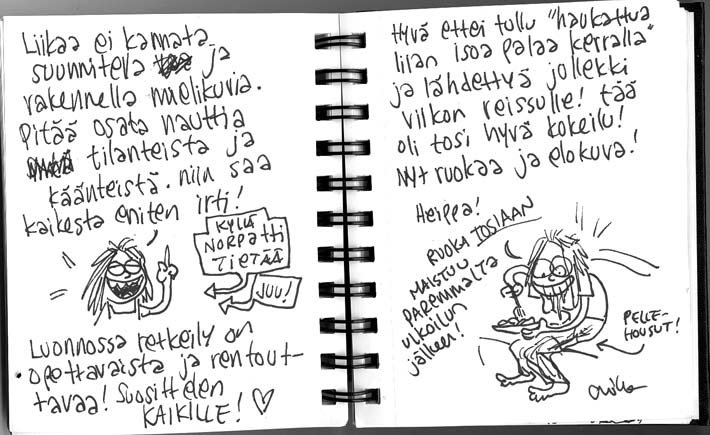 Liikaa ei kannata
suunnitella ja
rakennella mielikuvia.
Pitää osata nauttia
tilanteista ja
käänteistä. niin saa
kaikesta eniten irti!
KYLLÄ
NORPATTI
TIETÄÄ
JUU!
Luonnossa retkeily on
opettavaista ja rentout-
tavaa! Suosittelen
KAIKILLE! ♡
Hyvä ettei tullu "haukattua
liian isoa palaa kerralla"
ja lähdettyä jollekki
viikon reissulle! tää
oli tosi hyvä kokeilu!
Nyt ruokaa ja elokuva!
Heippa!
RUOKA TOSIAAN
MAISTUU
PAREMMALTA
ulkoilun
jälkeen!
PELLE-
HOUSUT!